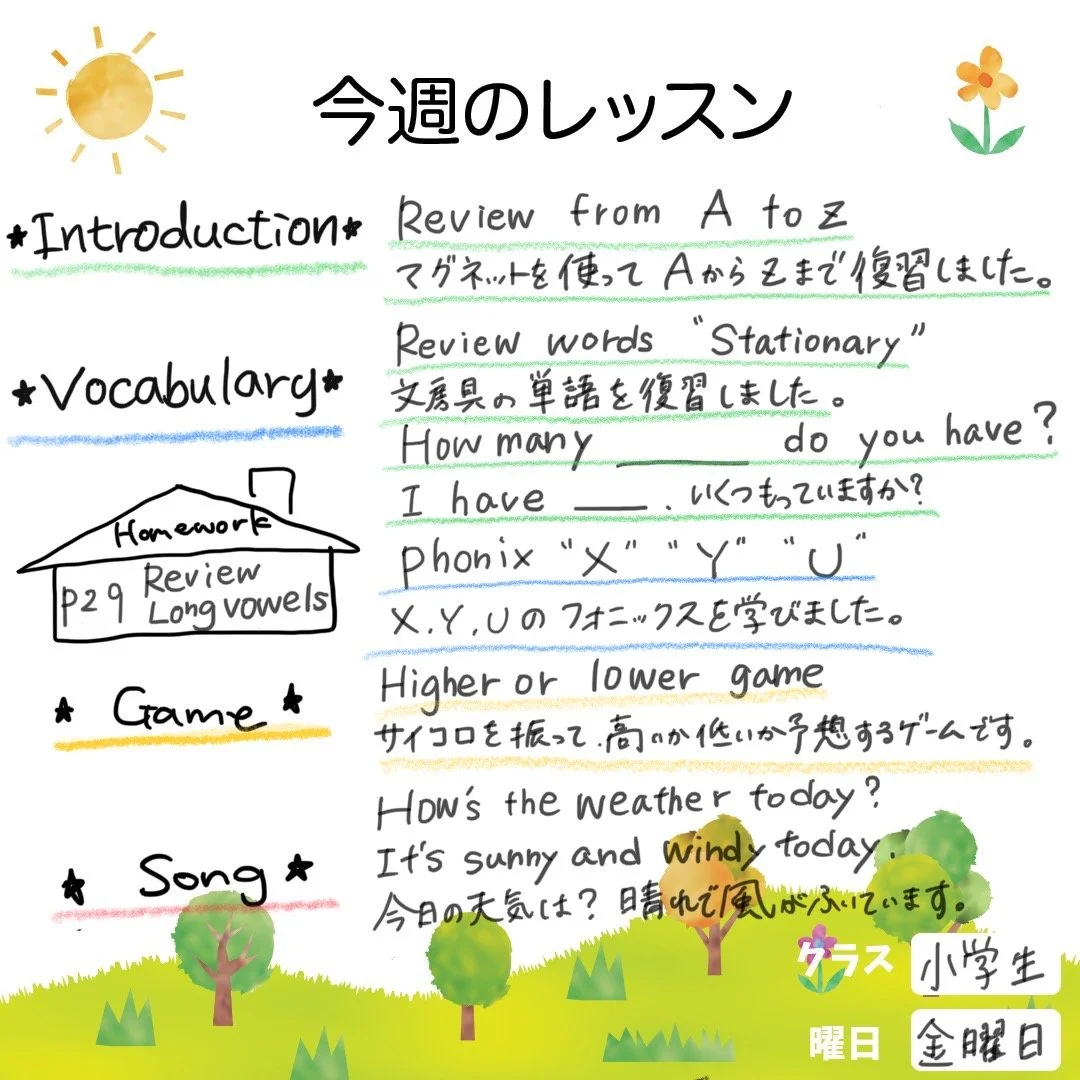 今週のレッスン
★Introduction★
Review from A to Z
マグネットを使って AからZまで復習しました。
★Vocabulary★
Review words "Stationary"
文房具の単語を復習しました。
How many ______ do you have?
I have ____. いくつもっていますか?
Phonix "X" "Y" "U"
X.Y.Uのフォニックスを学びました。
Homework
P29 Review
Long vowels
★ Game ★
Higher or lower game
サイコロを振って、高いか低いか予想するゲームです。
★ Song ★
How's the weather today?
It's sunny and windy today.
今日の天気は? 晴れで風がふいています。
クラス 小学生
曜日 金曜日